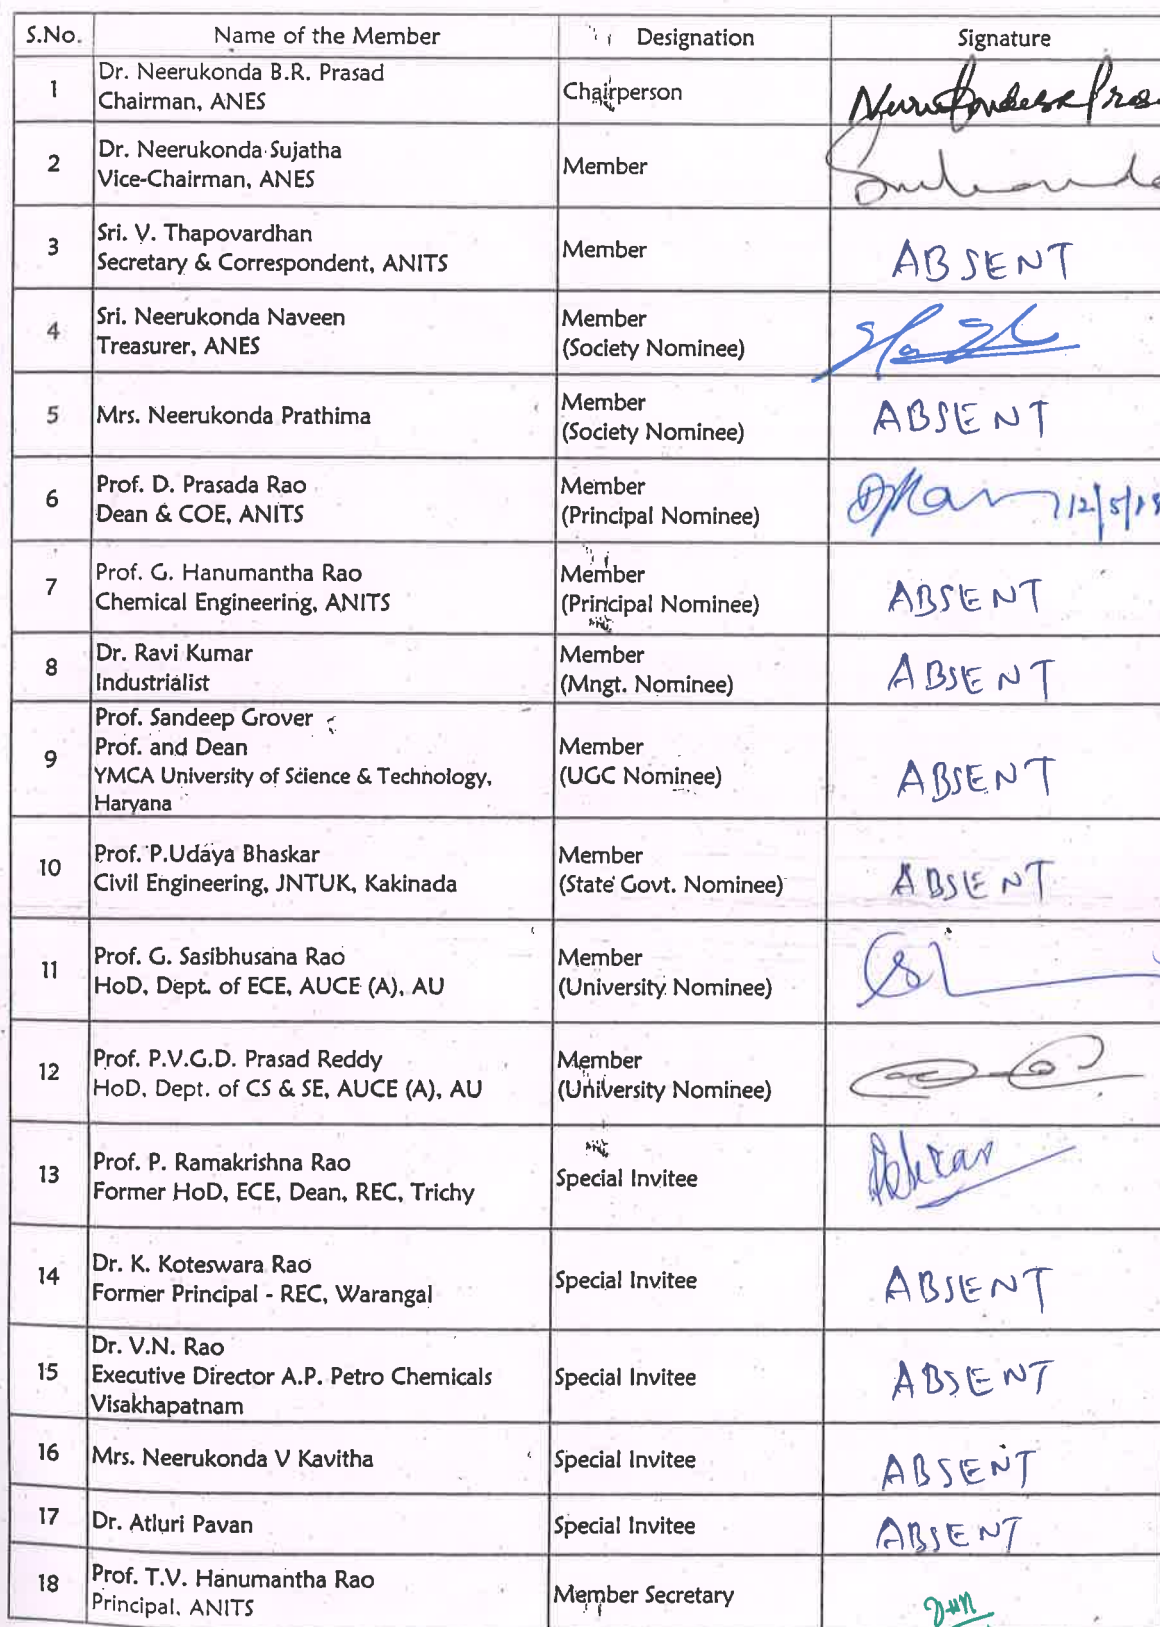 S.No. Name of the Member Designation Signature
1 Dr. Neerukonda B.R. Prasad
Chairman, ANES
Chairperson
2 Dr. Neerukonda Sujatha
Vice-Chairman, ANES
Member
3 Sri. V. Thapovardhan
Secretary & Correspondent, ANITS
Member ABSENT
4 Sri. Neerukonda Naveen
Treasurer, ANES
Member
(Society Nominee)
5 Mrs. Neerukonda Prathima
Member
(Society Nominee)
ABSENT
6 Prof. D. Prasada Rao
Dean & COE, ANITS
Member
(Principal Nominee)
7 Prof. G. Hanumantha Rao
Chemical Engineering, ANITS
Member
(Principal Nominee)
ABSENT
8 Dr. Ravi Kumar
Industrialist
Member
(Mngt. Nominee)
ABSENT
9 Prof. Sandeep Grover
Prof. and Dean
YMCA University of Science & Technology,
Haryana
Member
(UGC Nominee)
ABSENT
10 Prof. P.Udaya Bhaskar
Civil Engineering, JNTUK, Kakinada
Member
(State Govt. Nominee)
ABSENT
11 Prof. G. Sasibhusana Rao
HoD, Dept. of ECE, AUCE (A), AU
Member
(University Nominee)
12 Prof. P.V.G.D. Prasad Reddy
HoD, Dept. of CS & SE, AUCE (A), AU
Member
(University Nominee)
13 Prof. P. Ramakrishna Rao
Former HoD, ECE, Dean, REC, Trichy
Special Invitee
14 Dr. K. Koteswara Rao
Former Principal - REC, Warangal
Special Invitee ABSENT
15 Dr. V.N. Rao
Executive Director A.P. Petro Chemicals
Visakhapatnam
Special Invitee ABSENT
16 Mrs. Neerukonda V Kavitha Special Invitee ABSENT
17 Dr. Atluri Pavan Special Invitee ABSENT
18 Prof. T.V. Hanumantha Rao
Principal, ANITS
Member Secretary